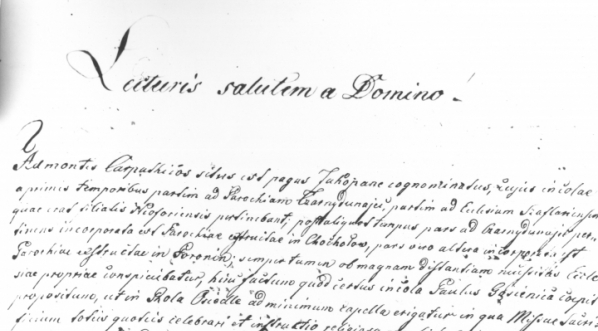 Lecturis salutem a Domino!
Ad montes Carpathicos situs est pagus Zakopane cognominatus, cujus incolae
a primis temporibus partim ad Parochiam Czarnydunajec, partim ad Eclesiam Szaflariensem
quae erat filialis Neoforiensis pertinebant, post aliquot tempus pars ad Czarnydunajec per-
tinens incorporata est Parochiae exstructae in Chochołow, pars vero altera incorporata est
Parochiae exstructae in Poronin; semper tamen ob magnam distantiam necessitas Ecle-
siae propriae conspiciebatur, hinc factum quod certus incola Paulus Gąsienica coepit
propositum, ut in Rola ad minimum capella erigatur in qua Missae Sacri-
ficium totis quotiis celebrari et instructio religiosa